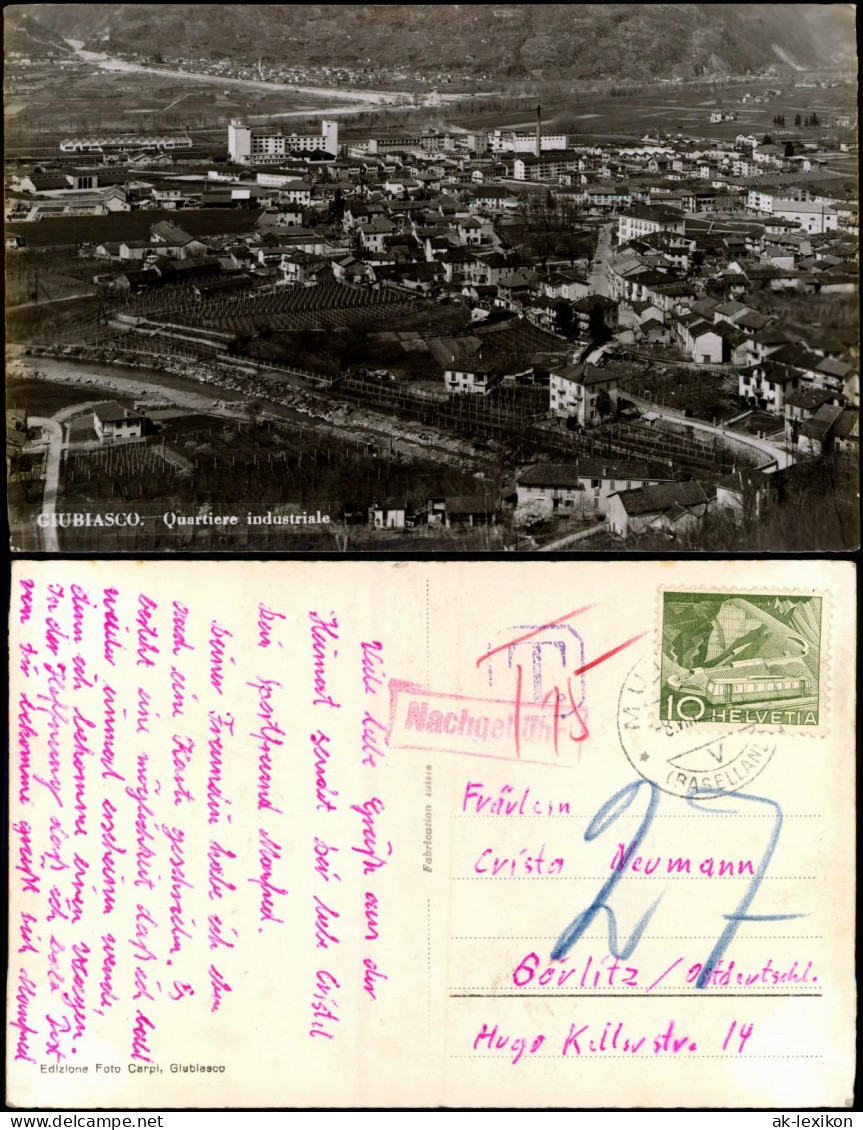 GIUBIASCO. Quartiere industriale
Viele liebe Grüße aus der
Heimat sendet dir liebe Cristel
dein Sportfreund Manfred.
Deiner Freundin habe ich eben
auch eine Karte geschrieben. Es
besteht eine möglichkeit daß ich bald
weiter einmal erscheinen werde,
denn ich bekomme einen Wagen.
In der Hoffnung daß ich bald Post
von dir bekomme grüßt dich Manfred
Edizione Foto Carpi, Giubiasco
Fabrication suisse
T
Nachgebühr
10 HELVETIA
V
(BASELLAND)
27
Fräulein
Crista Neumann
Görlitz / Ostdeutschl.
Hugo Kellerstr. 14
ak-lexikon